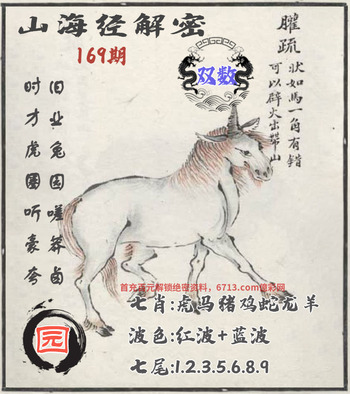 山海经解密
169期
双数
䑏疏
状如馬一角有錯
可以辟火出帶山
旧业兔园嗟莽卤
时才虎圈听豪夸
首充百元解锁绝密资料,6713.com億彩网
七肖:虎马猪鸡蛇龙羊
波色:红波+蓝波
七尾:1.2.3.5.6.8.9
元